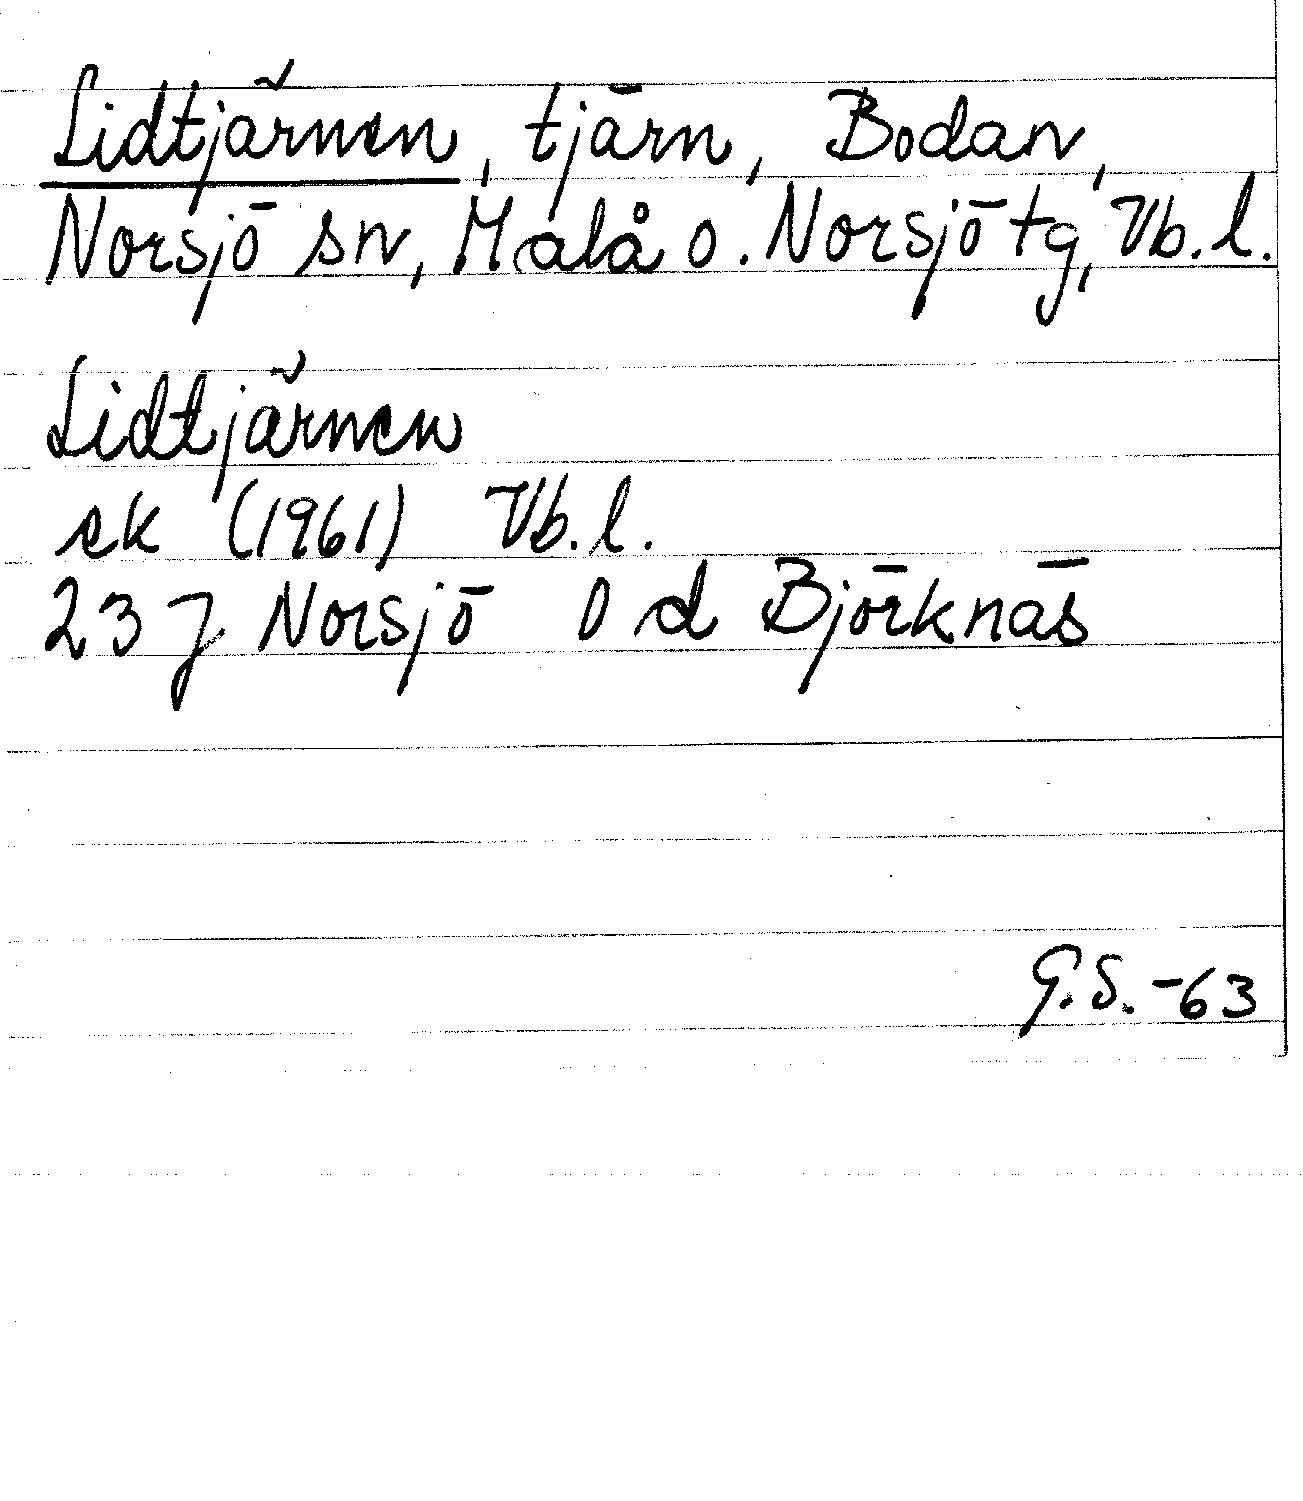 Lidtjärnen, tjärn, Bodan,
Norsjö sn, Malå o. Norsjö tg, Vb. l.
Lidtjärnen
ek (1961) Vb. l.
23 J Norsjö 0 d Björknäs
G.S. -63